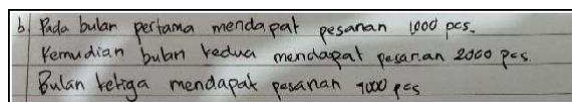 b. Pada bulan pertama mendapat pesanan 1000 pcs.
Kemudian bulan kedua mendapat pesanan 2000 pcs
Bulan ketiga mendapak pesanan 4000 pcs